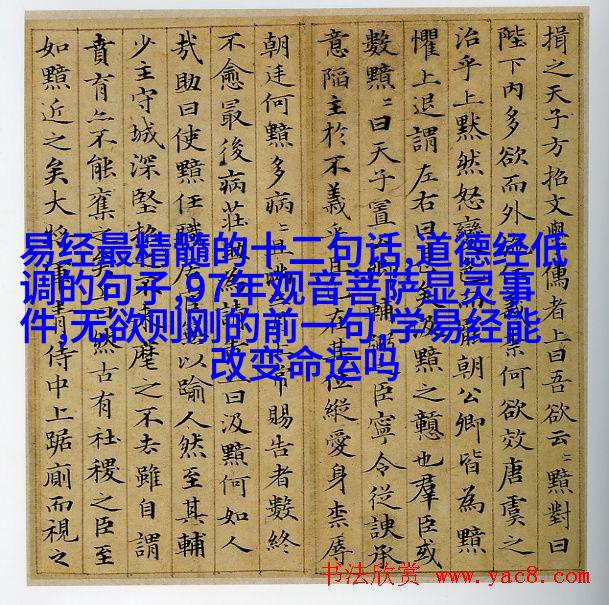 損之天子方招文學儒者上曰吾欲云〻黯對曰
陛下内多欲而外義柰何欲效唐虞之
治乎上黙然怒變朝公卿皆為黯
懼上退謂左右曰甚矣汲黯之戇也羣臣或
數黯〻曰天子置輔弼臣寧令從諛承
意陷主於不義乎且在其位縱愛身柰辱
朝廷何黯多病〻且常賜告者數終
不愈最後病莊助為請曰汲黯何如人
㢤助曰使黯任職居官以踰人然至其輔
少主守城深堅招来麾之不去雖自謂
賁育亦不能奪之矣上曰然古有社稷之臣至
如黯近之矣大將軍青侍中上踞廁而視之
易经最精髓的十二句话,道德经低
调的句子,97年观音菩萨显灵事
件,无欲则刚的前一句,学易经能
改变命运吗
书法欣赏 www.yac8.com